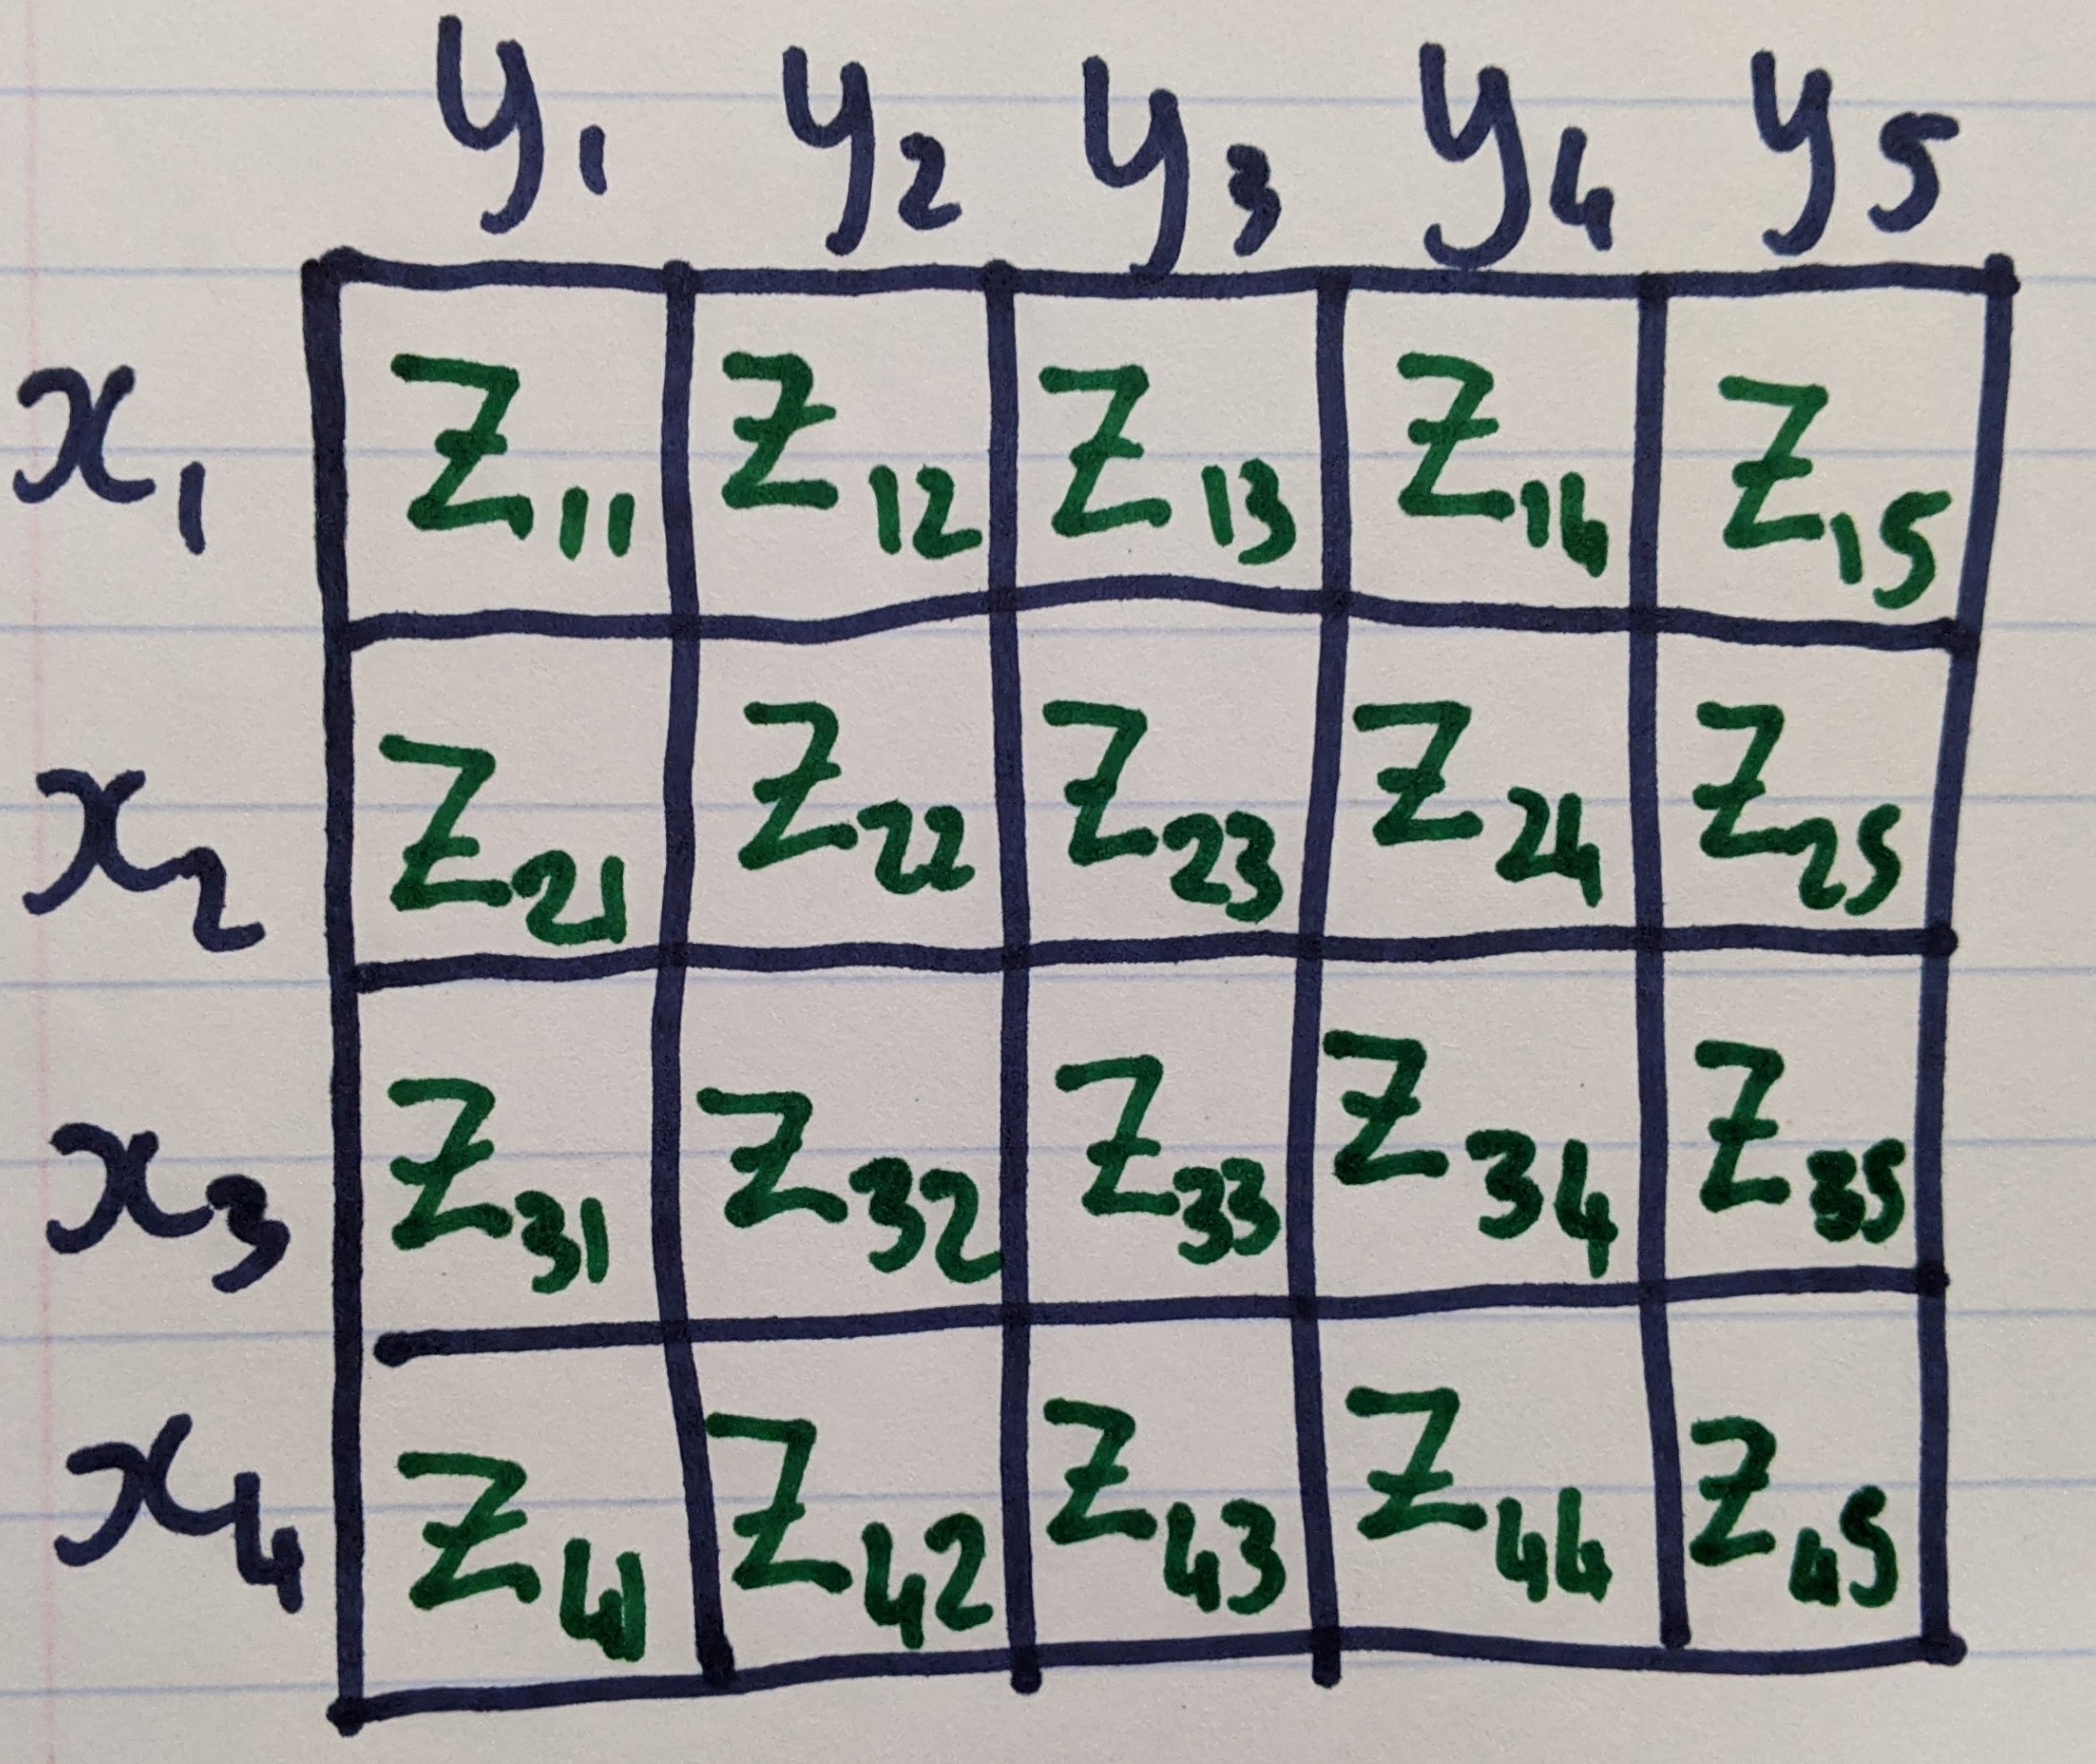 y₁ y₂ y₃ y₄ y₅
x₁ Z₁₁ Z₁₂ Z₁₃ Z₁₄ Z₁₅
x₂ Z₂₁ Z₂₂ Z₂₃ Z₂₄ Z₂₅
x₃ Z₃₁ Z₃₂ Z₃₃ Z₃₄ Z₃₅
x₄ Z₄₁ Z₄₂ Z₄₃ Z₄₄ Z₄₅